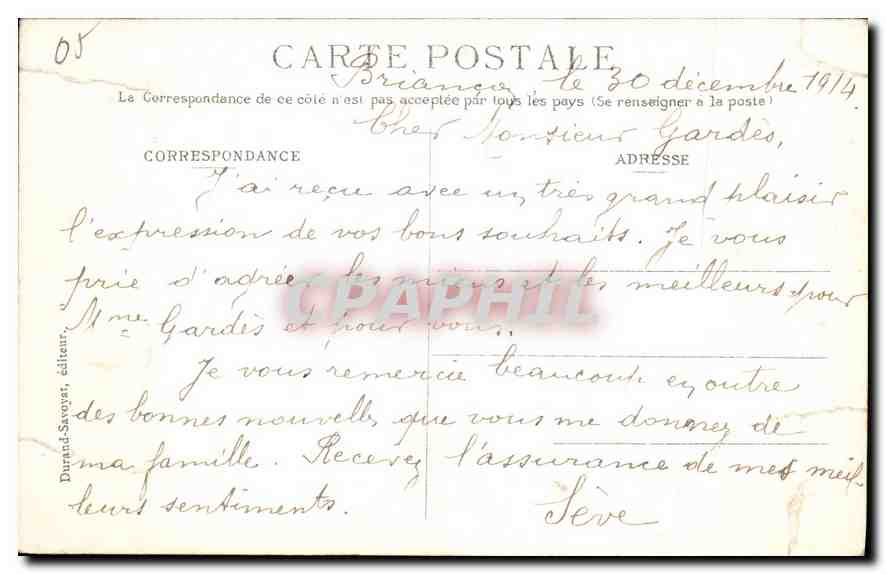 05
CARTE POSTALE
Briançon le 30 décembre 1914.
La Correspondance de ce côté n'est pas acceptée par tous les pays (Se renseigner à la poste)
Cher Monsieur Gardès,
CORRESPONDANCE
ADRESSE
J'ai reçu avec un très grand plaisir
l'expression de vos bons souhaits. Je vous
prie d'agréer les miens et les meilleurs pour
Mme Gardès et pour vous.
CPAPHIL
Je vous remercie beaucoup en outre
des bonnes nouvelles que vous me donnez de
ma famille. Recevez l'assurance de mes meil-
leurs sentiments.
Sève
Durand-Savoyat, éditeur.